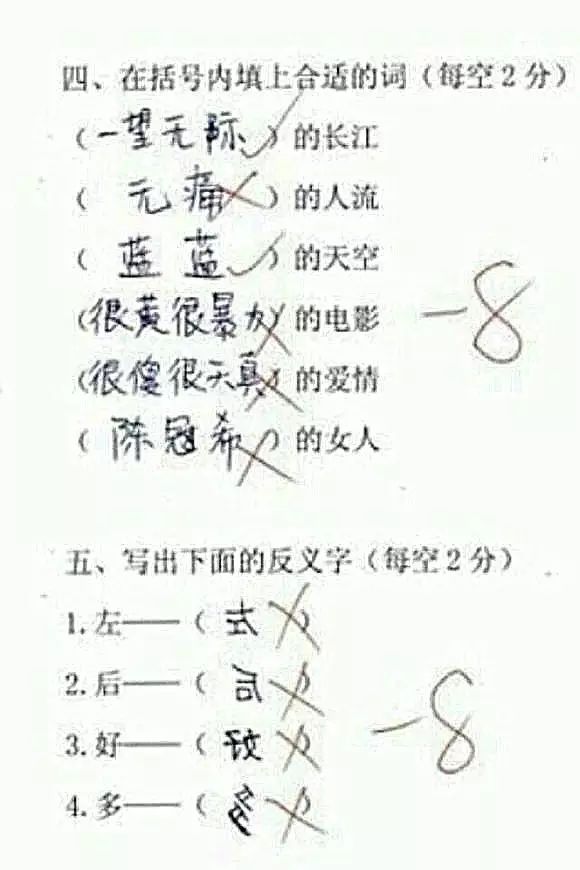 四、在括号内填上合适的词（每空2分）
（一望无际）的长江
（无痛）的人流
（蓝蓝）的天空
（很黄很暴力）的电影
（很傻很天真）的爱情
（陈冠希）的女人
-8
五、写出下面的反义字（每空2分）
1.左——（）
2.后——（）
3.好——（）
4.多——（）
-8